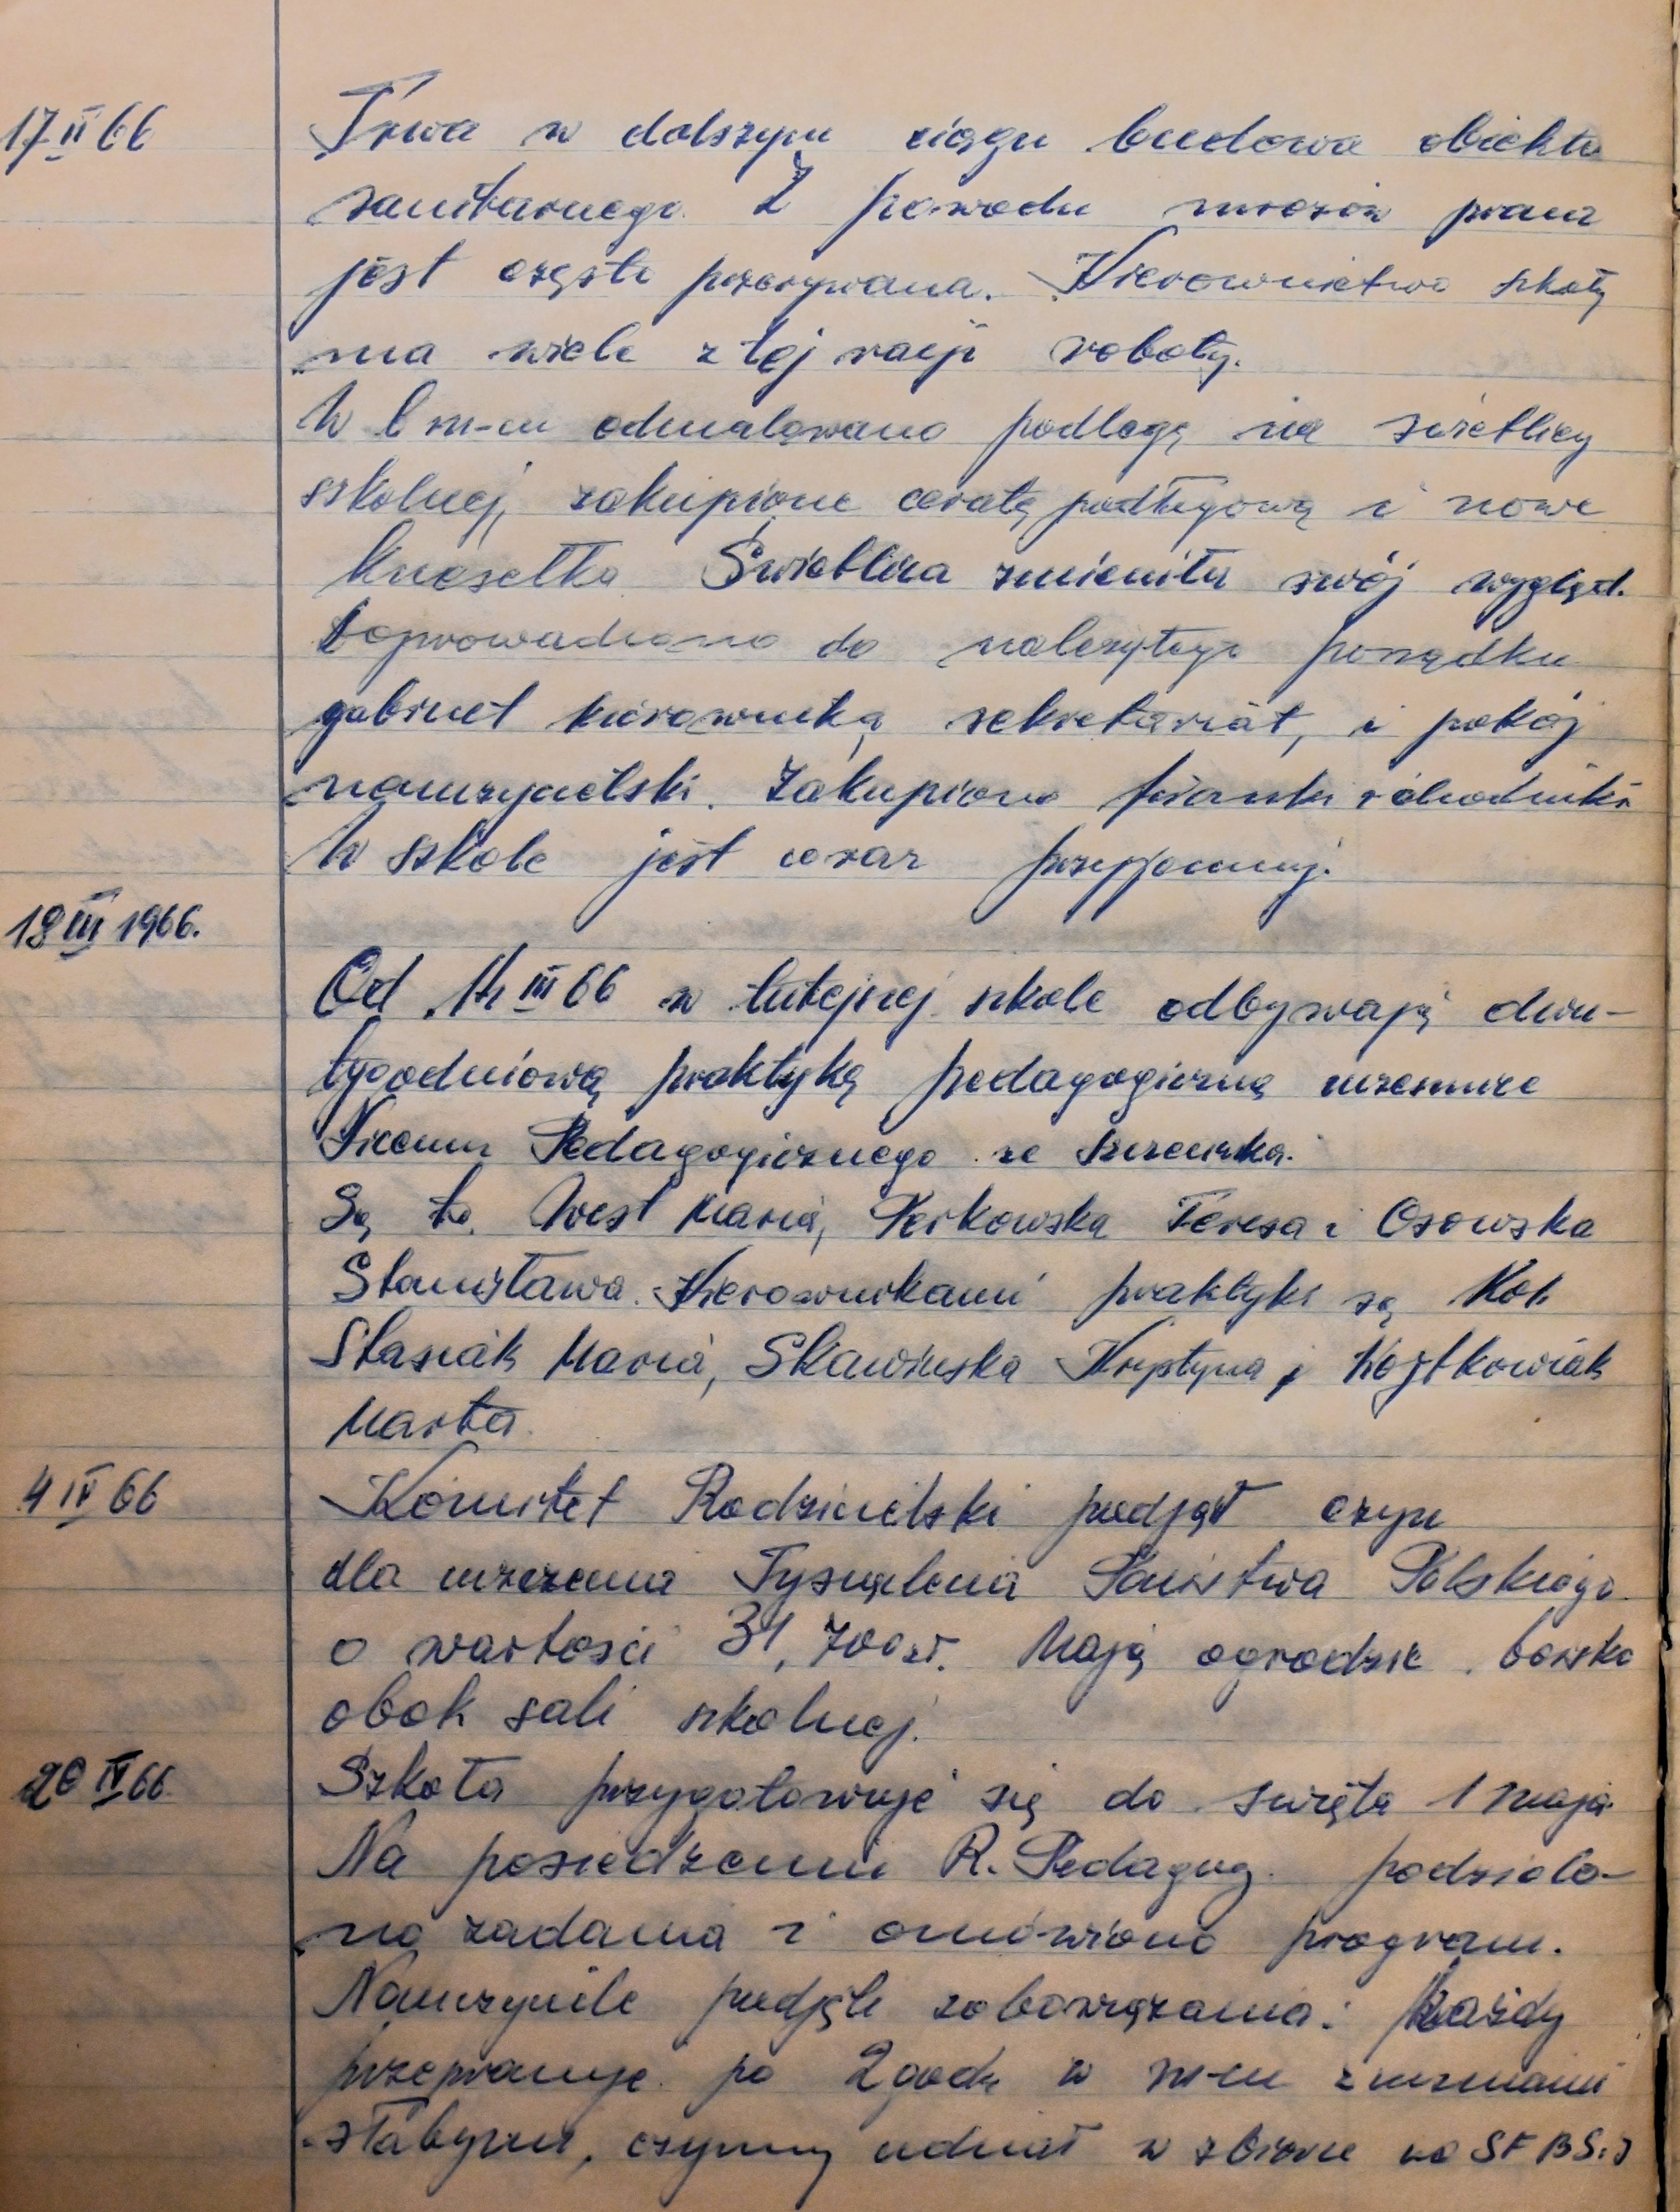 17 II 66
Trwa w dalszym ciągu budowa obiektu
sanitarnego. Z powodu mrozów praca
jest często przerywana. Kierownictwo szkoły
ma wiele z tej racji roboty.
W b m-cu odmalowano podłogę na świetlicy
szkolnej, zakupione ceratę podłogową i nowe
krzesełka. Świetlica zmieniła swój wygląd.
Doprowadzono do należytego porządku
gabinet kierownika, sekretariat, i pokój
nauczycielski. Zakupiono firanki i chodniki
W szkole jest coraz przyjemniej.
18 III 1966.
Od 14 III 66 w tutejszej szkole odbywają dwu-
tygodniową praktykę pedagogiczną uczennice
Liceum Pedagogicznego ze Szczecinka.
Są to. West Maria, Perkowska Teresa i Osowska
Stanisława. Kierownikami praktyki są Kol.
Stasiak Maria, Skawińska Krystyna i Wojtkowiak
Marta.
4 IV 66
Komitet Rodzicielski podjął czyn
dla uczczenia Tysiąclecia Państwa Polskiego
o wartości 31,700 zł. Mają ogrodzić boisko
obok sali szkolnej.
20 IV 66
Szkoła przygotowuje się do święta 1 maja.
Na posiedzeniu R. Pedagog. podzielo-
no zadania i omówiono program.
Nauczyciele podjęli zobowiązania: Każdy
przepracuje po 2 godz w m-cu z uczniami
słabymi, czynny udział w zbiórce na SFBS i I